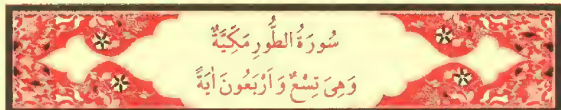 سُورَةُ الطُّورِ مَكِّيَّةٌ
وَهِيَ تِسْعٌ وَاَرْبَعُونَ اٰيَةً